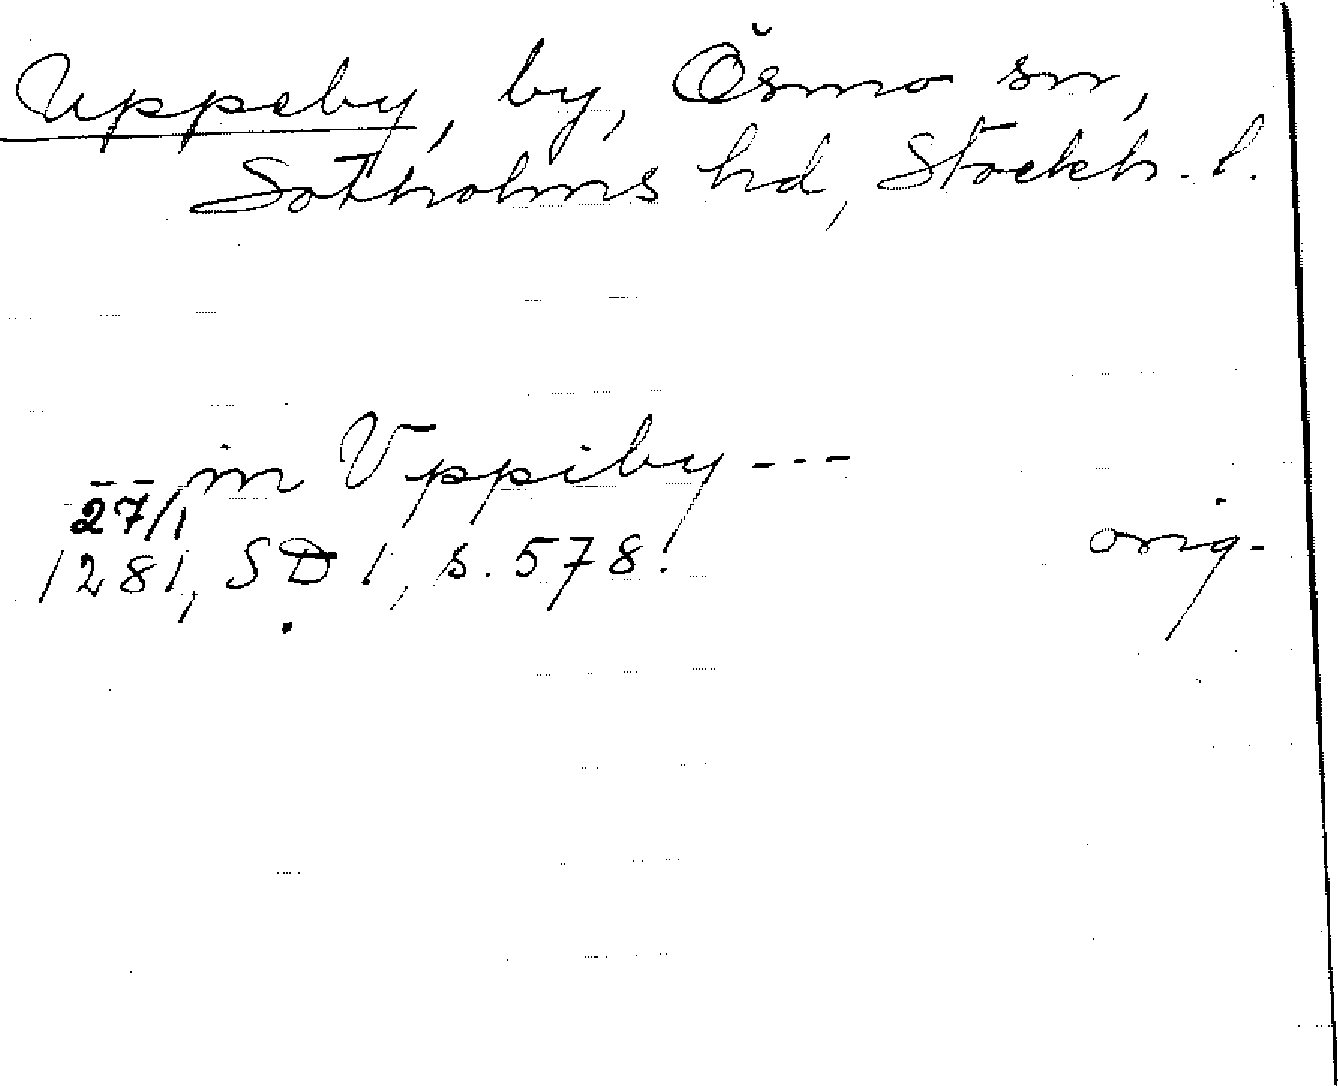 Uppeby, by, Ösmo sn,
Sotholms hd, Stockh. l.
-- in Vppiby ---
27/1
1281, SD 1, s. 578. orig.